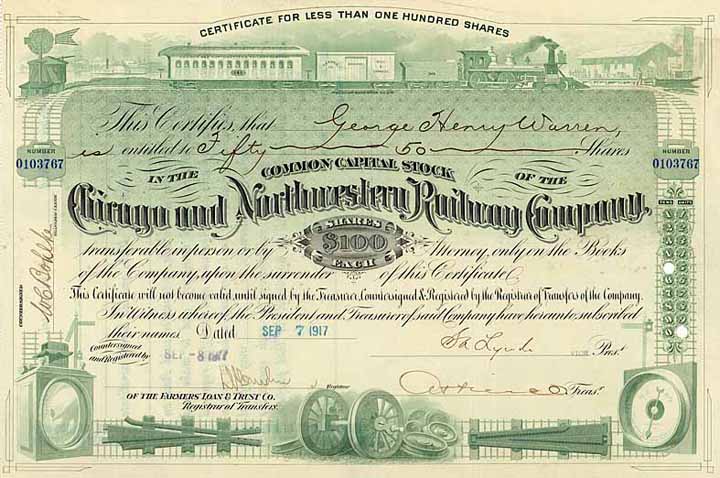 CERTIFICATE FOR LESS THAN ONE HUNDRED SHARES
This Certifies, that George Henry Warren,
is entitled to Fifty 50 Shares
NUMBER
0103767
NUMBER
0103767
IN THE COMMON CAPITAL STOCK OF THE
Chicago and Northwestern Railway Company,
SHARES
$100
EACH
transferable in person or by Attorney, only on the Books
of the Company, upon the surrender of this Certificate.
This Certificate will not become valid, until signed by the Treasurer, Countersigned & Registered by the Registrar of Transfers of the Company.
In Witness whereof, the President and Treasurer of said Company have hereunto subscribed
their names. Dated SEP 7 1917
Countersigned
and Registered by
SEP -8 1917
VICE Prest.
Registrar
OF THE FARMERS LOAN & TRUST CO.
Registrar of Transfers.
Treasr.
COUNTERSIGNED
TENS UNITS